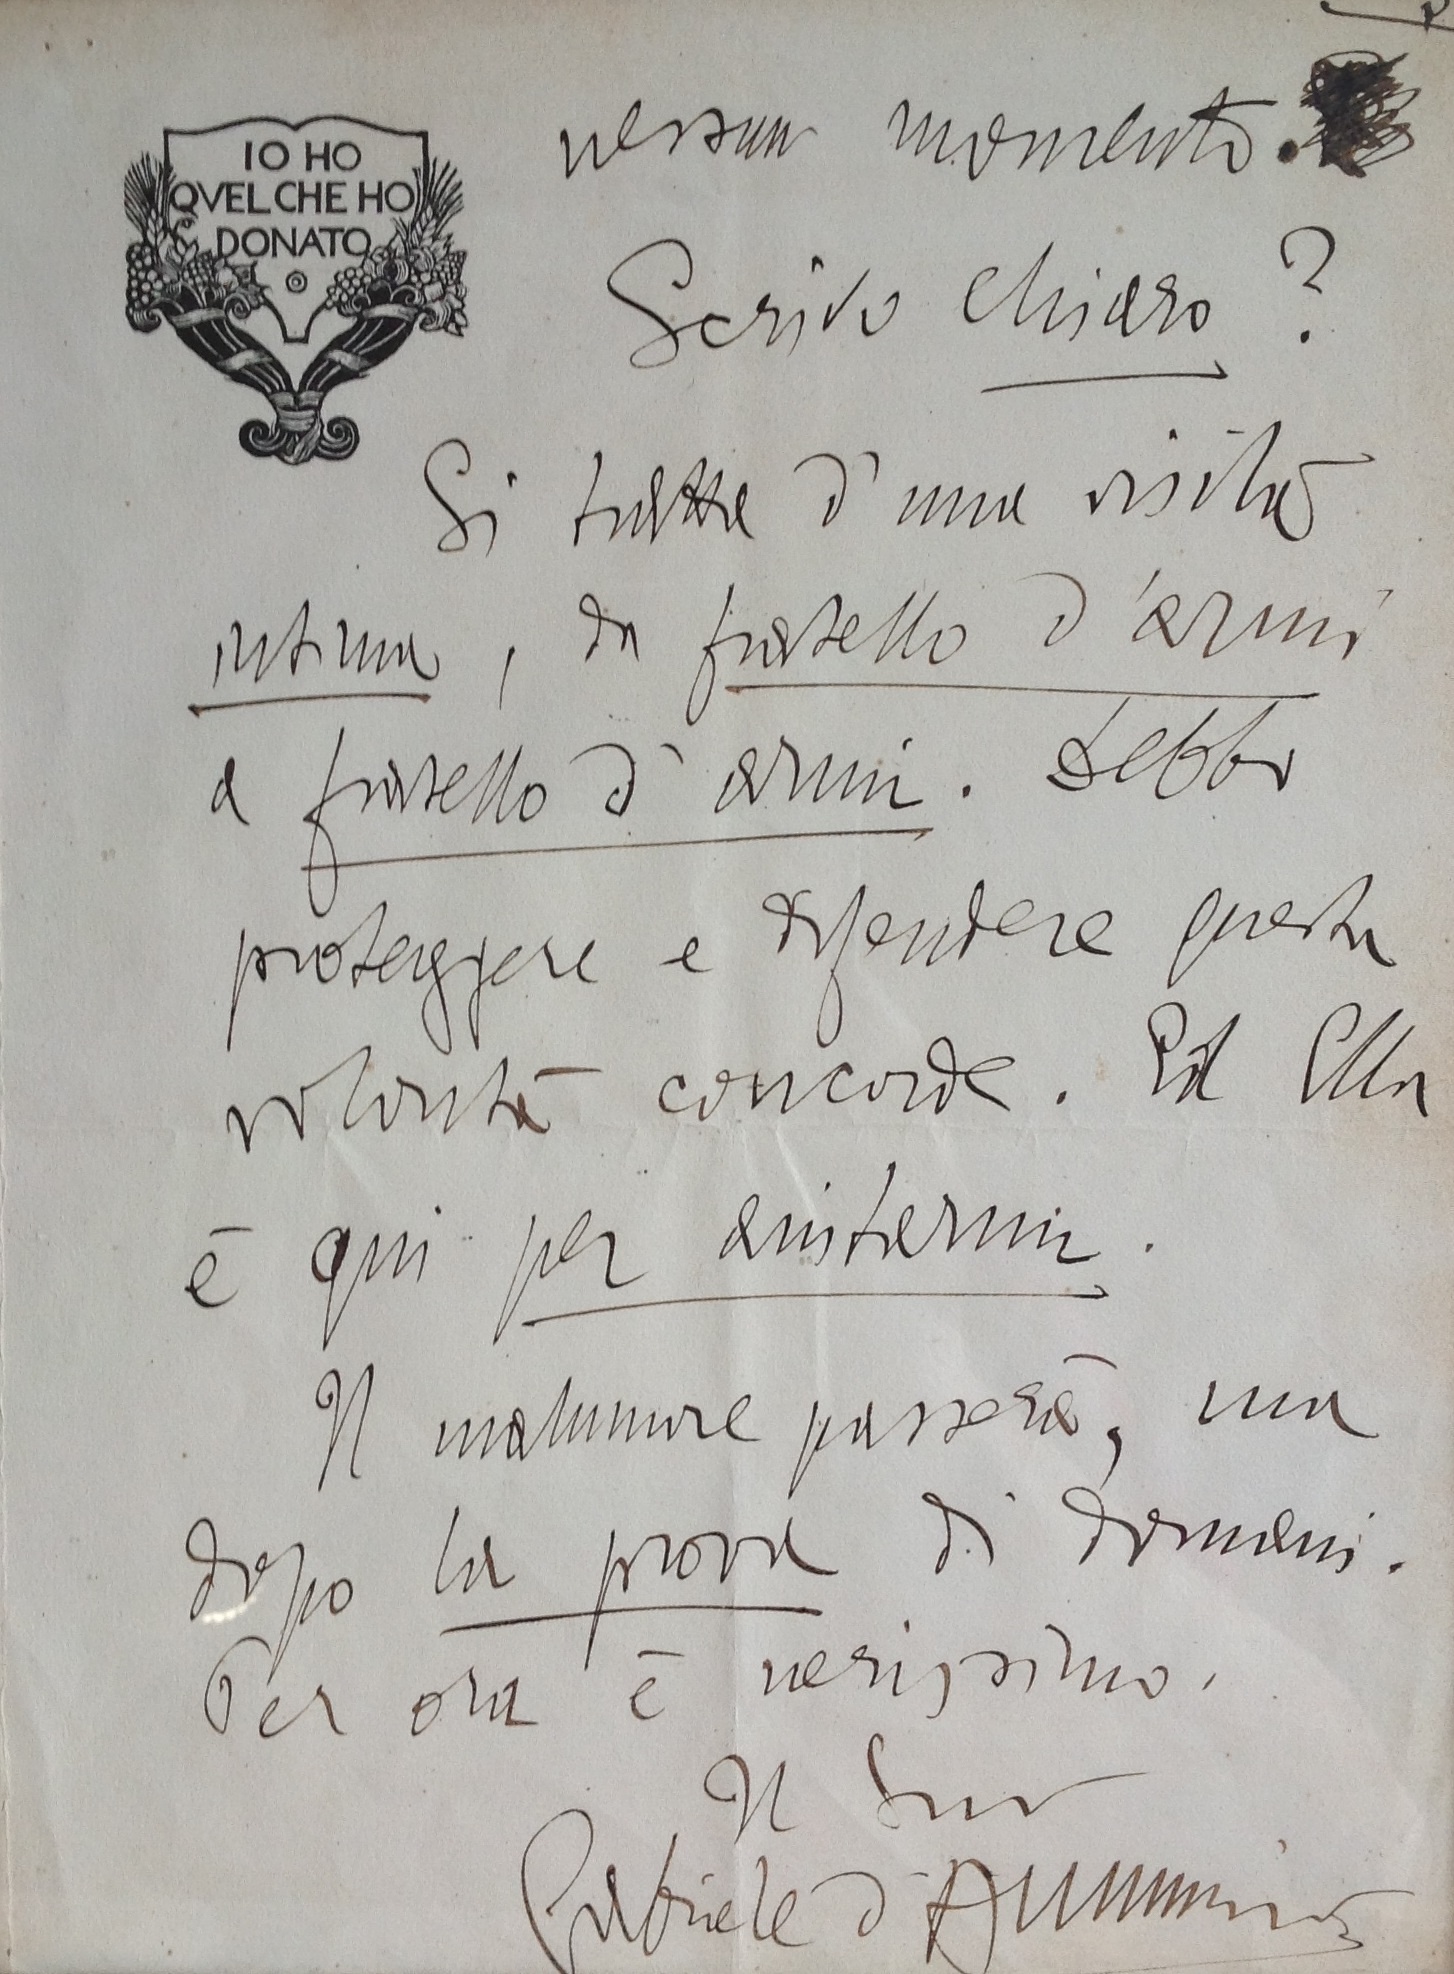 IO HO
QVEL CHE HO
DONATO
nessun momento.
Scrivo chiaro?
Si tratta d'una visita
intima, da fratello d'armi
a fratello d'armi. Debbo
proteggere e difendere questa
volontà concorde. Ed Ella
è qui per aiutarmi.
Il malumore passerà, ma
dopo la prova di domani.
Per ora è nerissimo.
Il Suo
Gabriele d'Annunzio